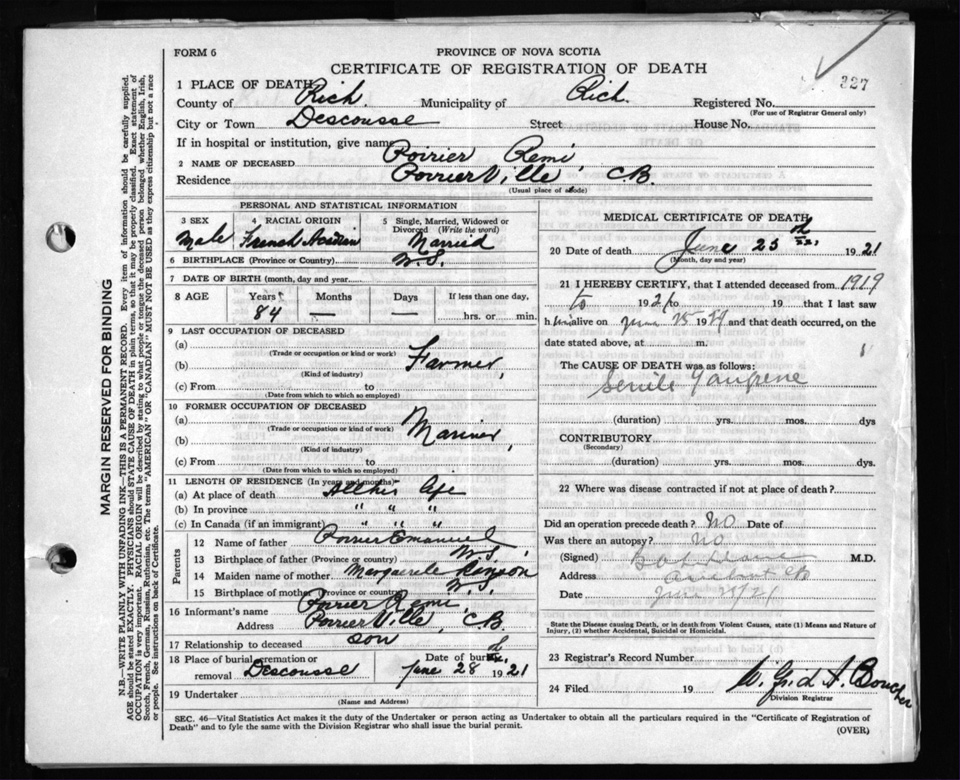 327
FORM 6
PROVINCE OF NOVA SCOTIA
CERTIFICATE OF REGISTRATION OF DEATH
1 PLACE OF DEATH
County of Rich. Municipality of Rich. Registered No.
(For use of Registrar General only)
City or Town Descousse Street House No.
If in hospital or institution, give name
2 NAME OF DECEASED Poirier Remi
Residence PoirierVille C.B.
(Usual place of abode)
PERSONAL AND STATISTICAL INFORMATION
3 SEX Male
4 RACIAL ORIGIN French Acadian
5 Single, Married, Widowed or Divorced (Write the word) Married
6 BIRTHPLACE (Province or Country) N.S.
7 DATE OF BIRTH (month, day and year)
8 AGE Years Months Days If less than one day,
84 — — hrs. or min.
9 LAST OCCUPATION OF DECEASED
(a)
(Trade or occupation or kind or work)
(b) Farmer,
(Kind of industry)
(c) From to
(Date from which to which so employed)
10 FORMER OCCUPATION OF DECEASED
(a)
(Trade or occupation or kind of work)
(b) Mariner,
(Kind of industry)
(c) From to
(Date from which to which so employed)
11 LENGTH OF RESIDENCE (In years and months)
(a) At place of death All his life
(b) In province " " "
(c) In Canada (if an immigrant) " " "
Parents
12 Name of father Poirier Emanuel
13 Birthplace of father (Province or country) N.S.
14 Maiden name of mother Marguerite
15 Birthplace of mother (Province or country) N.S.
16 Informant's name Poirier Remi
Address PoirierVille, C.B.
17 Relationship to deceased son
18 Place of burial, cremation or removal Descousse Date of burial June 28 1921
19 Undertaker
(Name and Address)
MEDICAL CERTIFICATE OF DEATH
20 Date of death June 25th 1921
(Month, day and year)
21 I HEREBY CERTIFY, that I attended deceased from 1919
to 1921 to 19 that I last saw
h im alive on June 25 19 and that death occurred, on the
date stated above, at m.
The CAUSE OF DEATH was as follows:
Senile Gangrene
(duration) yrs. mos. dys
CONTRIBUTORY
(Secondary)
(duration) yrs. mos. dys.
22 Where was disease contracted if not at place of death?
Did an operation precede death? No Date of
Was there an autopsy? No
(Signed) M.D.
Address Arichat CB
Date June
State the Disease causing Death, or in death from Violent Causes, state (1) Means and Nature of Injury, (2) whether Accidental, Suicidal or Homicidal.
23 Registrar's Record Number
24 Filed 19 A. Boucher
Division Registrar
SEC. 46—Vital Statistics Act makes it the duty of the Undertaker or person acting as Undertaker to obtain all the particulars required in the "Certificate of Registration of
Death" and to fyle the same with the Division Registrar who shall issue the burial permit.
(OVER)
MARGIN RESERVED FOR BINDING
N.B.—WRITE PLAINLY WITH UNFADING INK—THIS IS A PERMANENT RECORD. Every item of information should be carefully supplied.
AGE should be stated EXACTLY. PHYSICIANS should STATE CAUSE OF DEATH in plain terms, so that it may be properly classified. Exact statement of
OCCUPATION is very important. RACIAL ORIGIN will be described by stating to what people or tongue the deceased person belonged whether English, Irish,
Scotch, French, German, Russian, Ruthenian, etc. The terms "AMERICAN" OR "CANADIAN" MUST NOT BE USED as they express citizenship but not a race
or people. See instructions on back of Certificate.